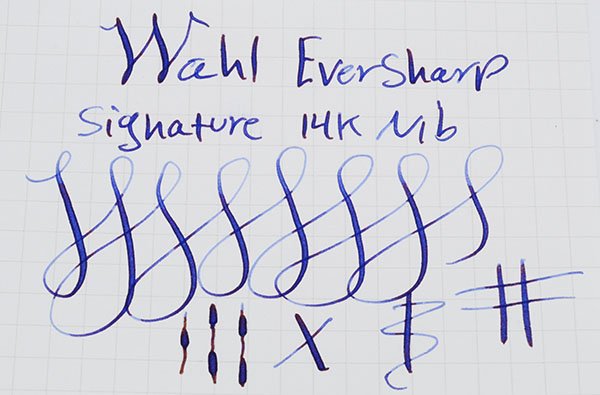 Wahl Eversharp
Signature 14K Nib